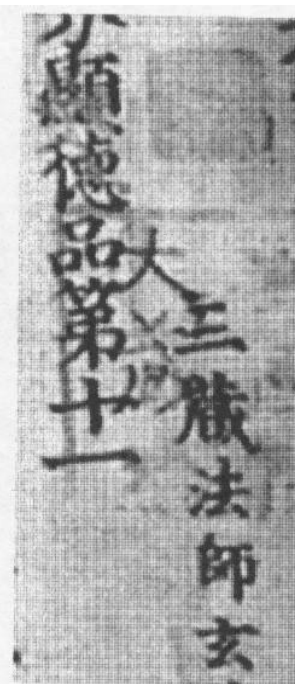 大三藏法師玄
顯德品第十一